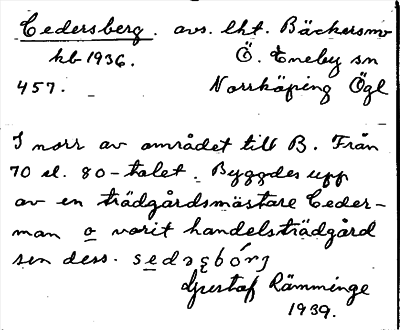 Cedersberg. avs. lht. Bäckersmo
kb 1936. Ö. Eneby sn
457. Norrköping Ögl
I norr av området till B. Från
70 el. 80-talet. Byggdes upp
av en trädgårdsmästare Ceder-
man o varit handelsträdgård
sen dess.
Gustaf Rämminge
1939.